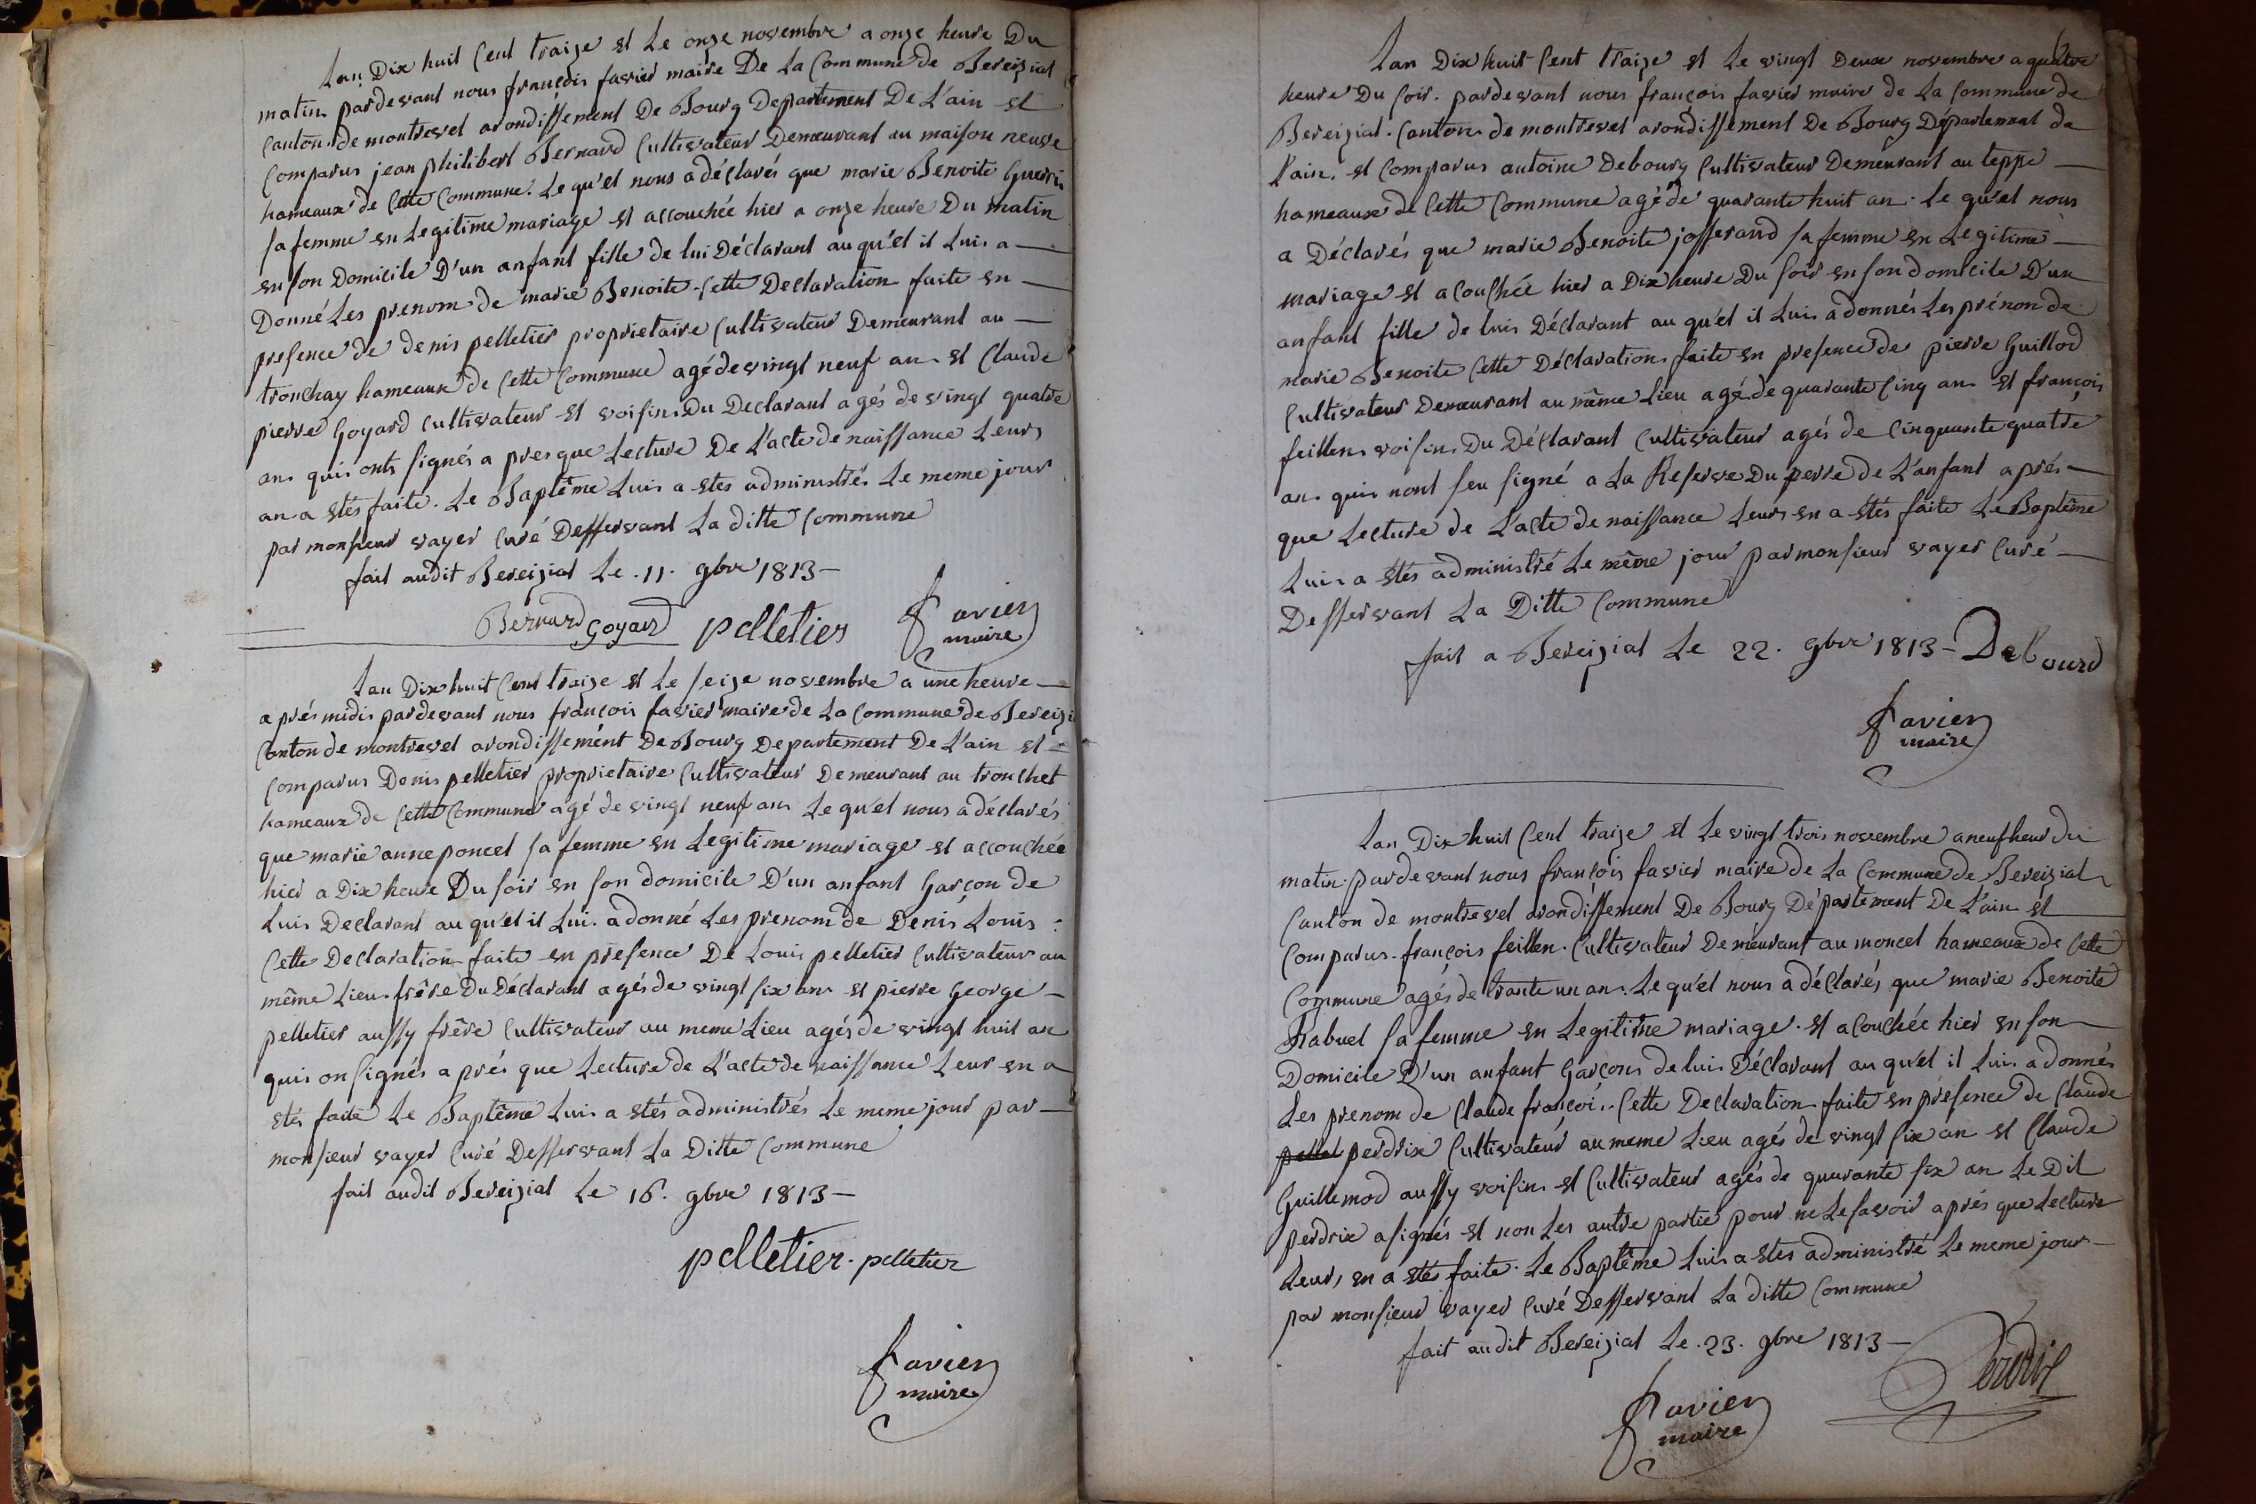 Lan Dix huit Cent traize et Le onze novembre a onze heure Du
matin pardevant nous françois favier maire De La Commune de Bereizial
Canton de montrevel arondissement De Bourg Departement De L'ain et
Comparus jean philibert Bernard Cultivateur Demeurant au maison neuve
hameaux de Cette Commune. Le qu'el nous a déclarés que marie Benoite Guerin
sa femme en Legitime mariage et accouchée hier a onze heure Du matin
en son Domicile D'un anfant fille de lui Déclarant au qu'el il Luis a
Donné Les prenom de marie Benoite. Cette Declaration faite en
presence de denis pelletier proprietaire Cultivateur Demeurant au
tronchay hameaux de Cette Commune agé de vingt neuf an et Claude
pierre Goyard Cultivateur et voisin Du Declarant agés de vingt quatre
an quis onts signés a pres que Lecture De L'acte de naissance Leurs
an a etés faite. Le Baptême Luis a etes administrés Le meme jour
par monsieur vayer Curé Desservant La ditte Commune
fait audit Bereizial Le .11. gbre 1813
Bernard Goyard pelletier favier
maire
Lan Dix huit Cent traize et Le seize novembre a une heure
aprés midis pardevant nous françois favier maire de La Commune de Bereizi
Canton de montrevel arondissement De Bourg Departement De L'ain et
Comparus Denis pelletier proprietaire Cultivateur Demeurant au tronchet
hameaux de Cette Commune agé de vingt neuf an Le qu'el nous a déclarés
que marie anne poncet sa femme en Legitime mariage et accouchée
hier a Dix heure Du soir en son domicile D'un anfant Garçon de
Luis Declarant au qu'el il Lui a donné Les prenom de Denis Louis :
Cette Declaration faite en presence De Louis pelletier Cultivateur au
même Lieu frêre Du Déclarant agés de vingt six an et pierre George
pelletier aussy frêre Cultivateur au meme Lieu agés de vingt huit an
quis on signés a prés que Lecture de L'acte de naissance Leur en a
etés faite Le Baptême Luis a etés administrés Le meme jour par
monsieur vayer Curé Desservant La Ditte Commune
fait audit Bereizial Le 16. gbre 1813
pelletier. pelletier
favier
maire
Lan Dix huit Cent traize et Le vingt Deux novembre a quatre
heure Du soir. pardevant nous françois favier maire de La Commune de
Bereizial. Canton de montrevel arondissement De Bourg Departement de
L'ain. et Comparus antoine Debourg Cultivateur Demeurant au teppe
hameaux de Cette Commune agé de quarante huit an. Le qu'el nous
a Déclarés que marie Benoite josserand sa femme en Legitime
mariage et acouchée hier a Dix heure Du soir en son domicile D'un
anfant fille de luis Déclarant au qu'el il Luis a donnés Les prénon de
marie Benoite Cette Déclaration faite en presence de pierre Guillod
Cultivateur Demeurant au même Lieu agé de quarante Cinq an et françois
feillen voisin Du Déclarant Cultivateur agés de Cinquante quatre
an quis nont seu signé a La Reserve Du perre de L'anfant aprés
que Lecture de L'acte de naissance Leurs en a etés faite Le Baptême
Luis a etés administré Le même jour par monsieur vayer Curé
Desservant La Ditte Commune
fait a Bereizial Le 22. gbre 1813 Debourd
favier
maire
Lan Dix huit Cent traize et Le vingt trois novembre a neuf heur du
matin pardevant nous françois favier maire de La Commune de Bereizial
Canton de montrevel arondissement De Bourg Département De L'ain et
Comparus françois feillen. Cultivateur Demeurant au moncel hameaux de Cette
Commune agés de trante un an. Le qu'el nous a déClarés que marie Benoite
Rabuel sa femme en Legitime mariage. et acouchée hier en son
Domicile D'un anfant Garçons de luis Déclarant au qu'el il Luis a donnés
Les prenom de Claude françoi. Cette Declaration faite en présence de Claude
pellet perdrix Cultivateur au meme Lieu agés de vingt six an et Claude
Guillemod aussy voisin et Cultivateur agés de quarante six an Le Dit
perdrix a signés et non Les autre partie pour ne Le savoir aprés que Lecture
Leurs en a etés faite. Le Baptême Luis a etes administré Le meme jour
par monsieur vayer Curé Desservant La ditte Commune
fait audit Bereizial Le .23. gbre 1813
perdrix
favier
maire